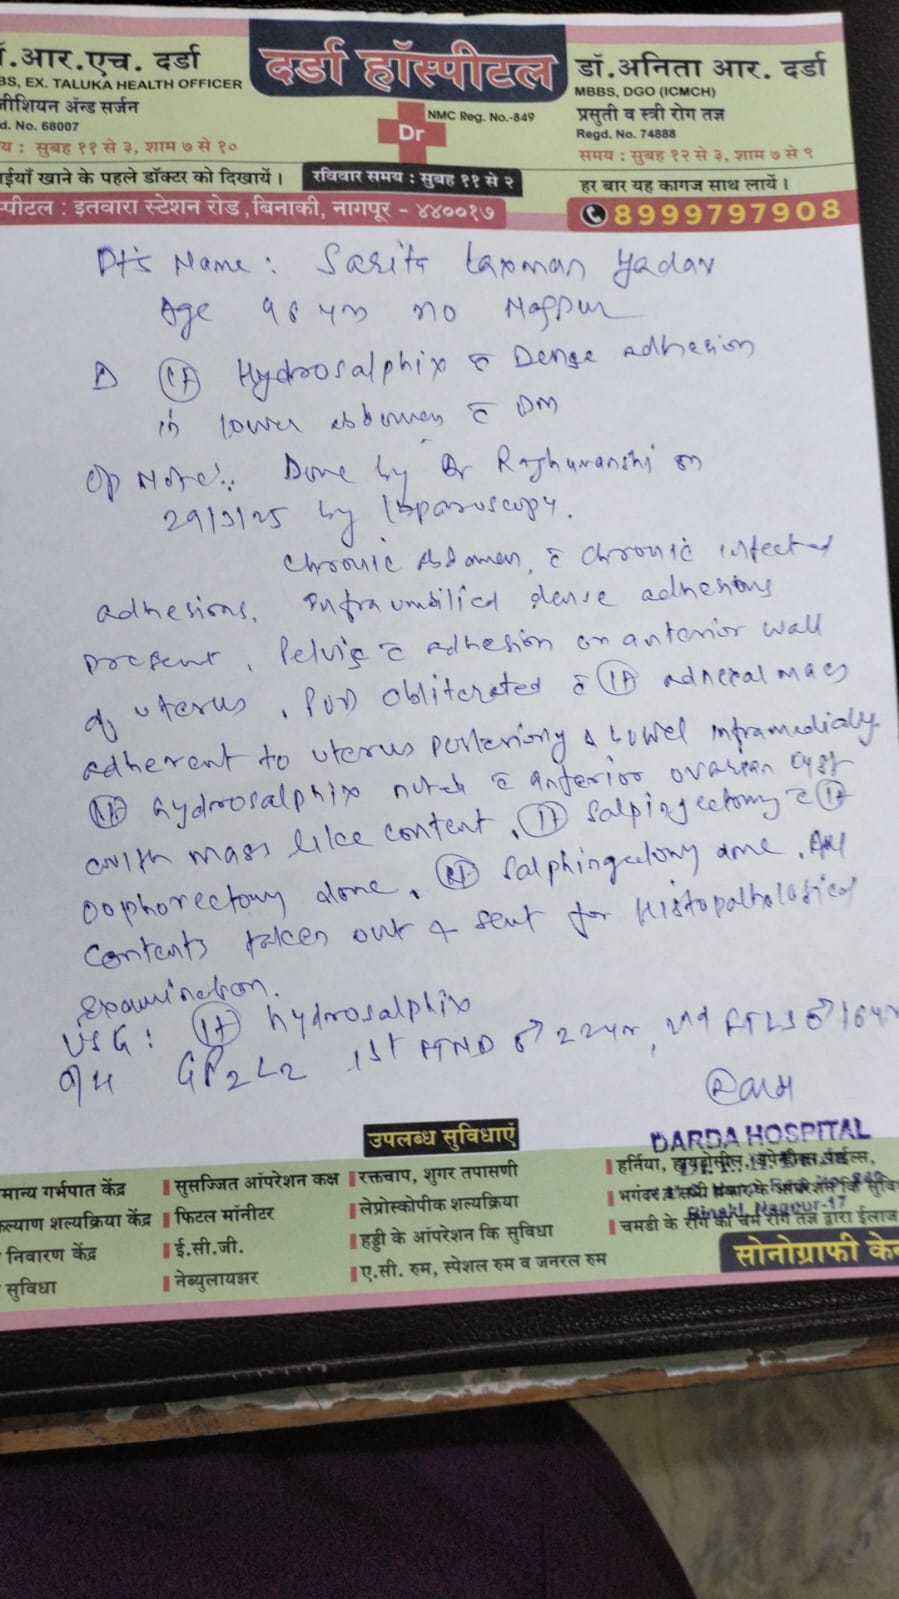 .आर.एच. दर्डा
BS, EX. TALUKA HEALTH OFFICER
जीशियन ॲन्ड सर्जन
d. No. 68007
य : सुबह ११ से ३, शाम ७ से १०
ाईयाँ खाने के पहले डॉक्टर को दिखायें।
दर्डा हॉस्पीटल
Dr
NMC Reg. No.-849
रविवार समय : सुबह ११ से २
डॉ.अनिता आर. दर्डा
MBBS, DGO (ICMCH)
प्रसुती व स्त्री रोग तज्ञ
Regd. No. 74888
समय : सुबह १२ से ३, शाम ७ से ९
हर बार यह कागज साथ लायें।
स्पीटल : इतवारा स्टेशन रोड, बिनाकी, नागपूर - ४४००१७
8999797908
Pt's Name : Sarita Laxman Yadav
Age Nagpur
Hydrosalphix c Dense adhesion
in lower abdomen c DM
OP Note:. Done by Dr Raghuwanshi on
29/3/25 by laparoscopy.
Chronic abdomen, c chronic infected
adhesions. Infraumbilical dense adhesions
present. Pelvis c adhesion on anterior wall
of uterus. POD obliterated c adnexal mass
adherent to uterus posteriorly & bowel inframedially
hydrosalphix c anterior ovarian cyst
with mass like content. Salpingectomy c
oophorectomy done. Salphingectomy done. All
contents taken out & sent for Histopathological
Examination.
USG : hydrosalphix
O/H 1st FTND ♂ 22yr, FTLS ♂ 16yr
उपलब्ध सुविधाएँ
DARDA HOSPITAL
Binaki, Nagpur-17
मान्य गर्भपात केंद्र
कल्याण शल्यक्रिया केंद्र
निवारण केंद्र
सुविधा
सुसज्जित ऑपरेशन कक्ष
फिटल मॉनीटर
ई.सी.जी.
नेब्युलायझर
रक्तचाप, शुगर तपासणी
लेप्रोस्कोपीक शल्यक्रिया
हड्डी के ऑपरेशन कि सुविधा
ए.सी. रुम, स्पेशल रुम व जनरल रुम
हर्निया, हायड्रोसील, अपेंडीक्स, पाईल्स,
भगंदर व सभी प्रकार के ऑपरेशन कि सुवि
चमडी के रोग का चर्म रोग तज्ञ द्वारा ईलाज
सोनोग्राफी केन